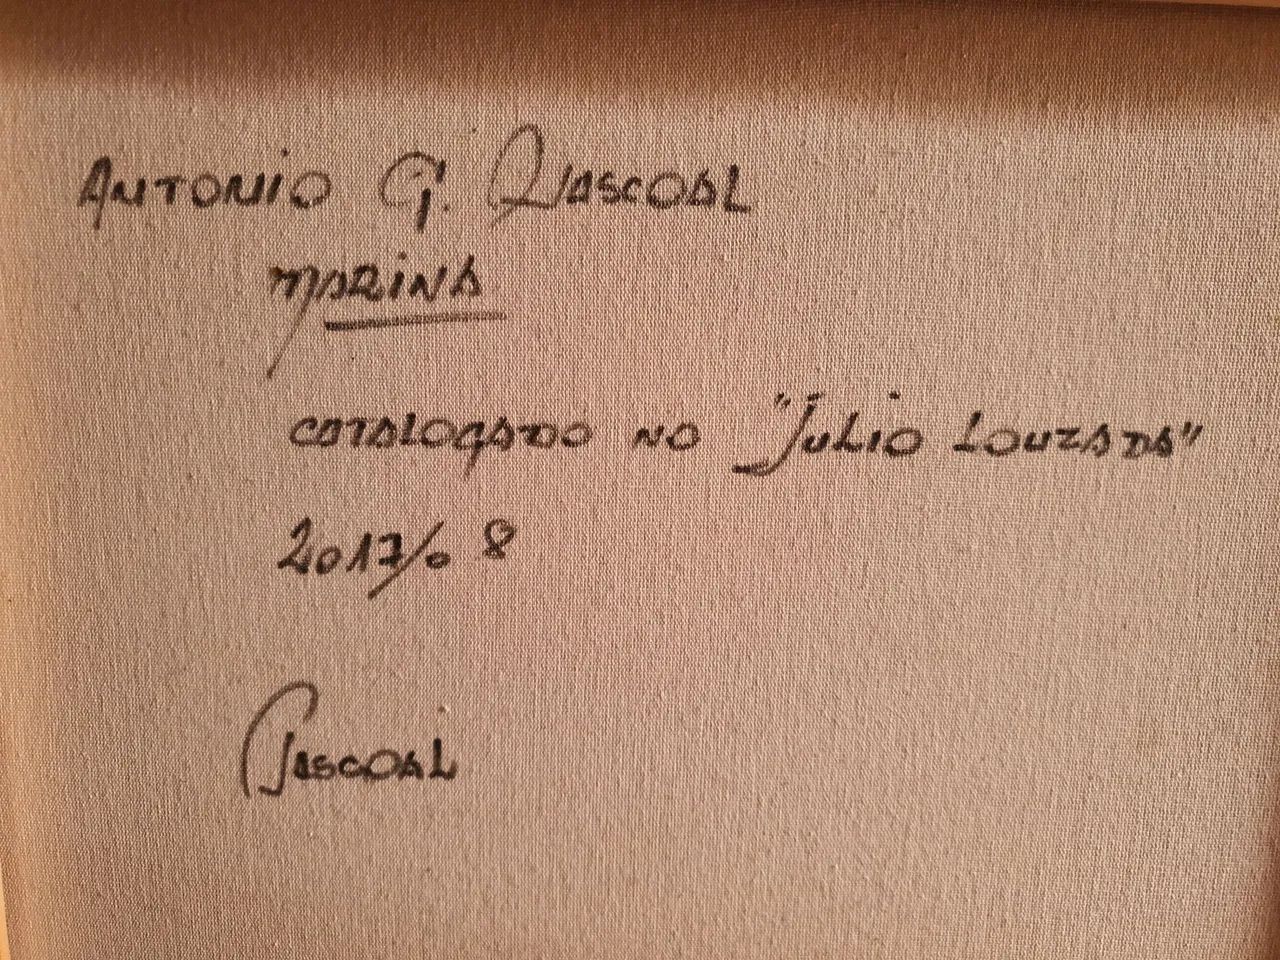 ANTONIO G. PASCOAL
MARINA
CATALOGADO NO "JULIO LOUZADA"
2017/08
PASCOAL